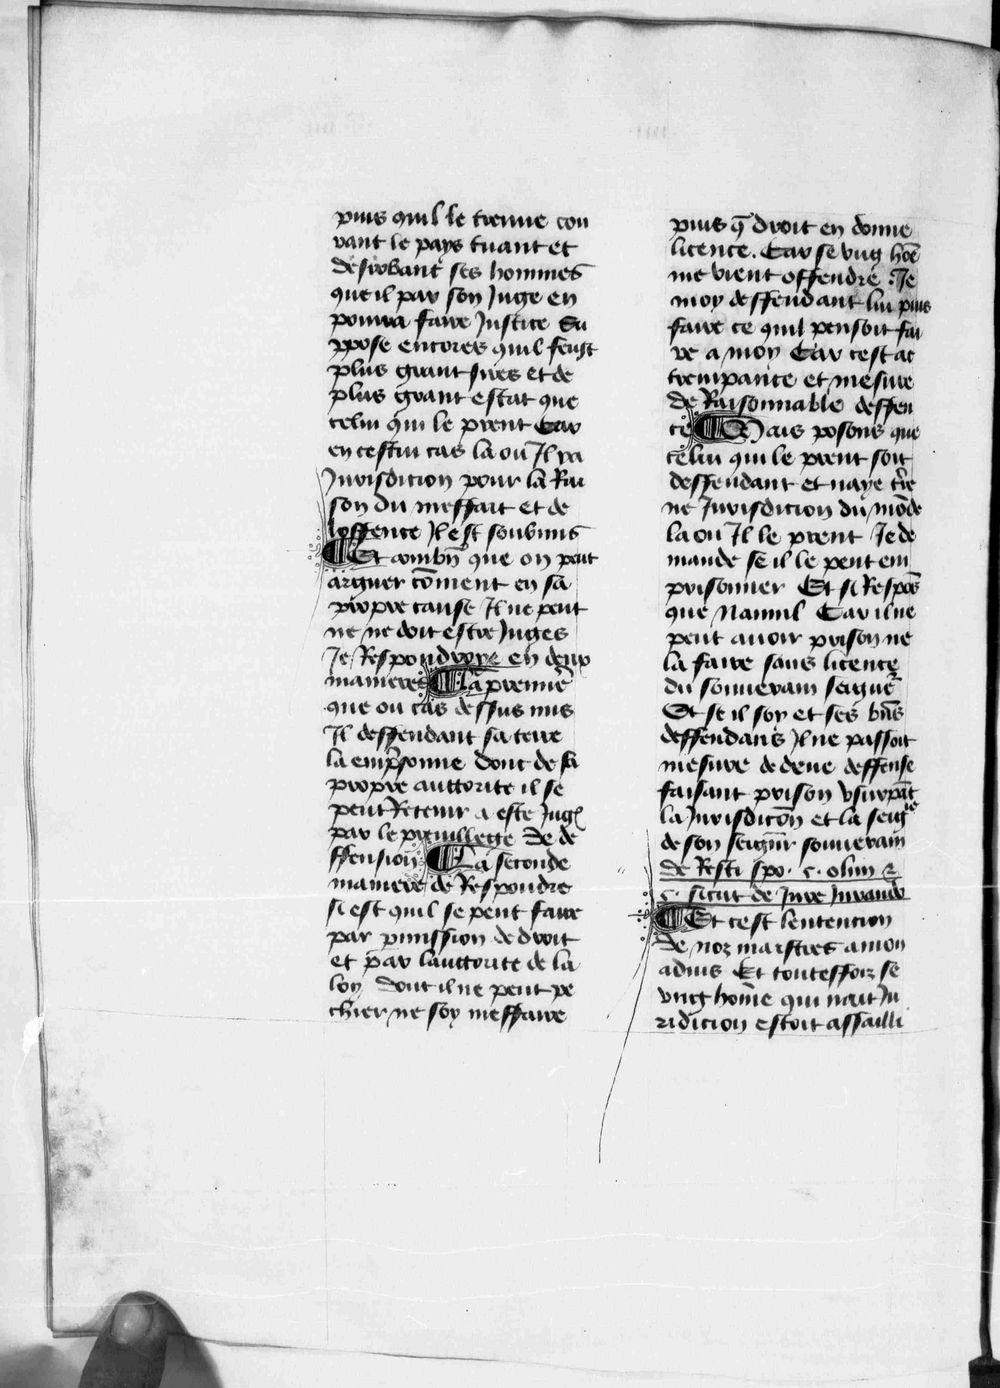 puis quil le treuue cou
rant le pays tuant et
desrobant ses hommes
que il par son Juge en
pourra faire Justice Su
ppose encores quil feust
plus grant sires et de
plus grant estat que
celui qui le prent Car
en cestui cas la ou Il ra
Jurisdicion pour la Rai
son du meffait et de
loffence Il est soubmis
¶ Et combn̄ que on peut
arguer cōment en sa
propre cause Il ne peut
ne ne doit estre Juges
Je Respondroye en deux
manieres ¶ La premiē
que ou cas dessus mis
Il deffendant sa terre
la emp̄sonne dont de sa
propre auctorite il se
peut Retenir a este Jugē
par le preuillege de de
ffension ¶ La seconde
maniere de Respondre
si est quil se peut faire
par pmission de droit
et par lauctorite de la
loy dont il ne peut pe
chier ne soy meffaire
puis q̄ droit en donne
licence. Car se vng hōe
me vient offendre . Je
moy deffendant lui puis
faire ce quil pensoit fai
re a moy Car cest at
trempance et mesure
de Raisonnable deffen
ce ¶ Mais posons que
celui qui le prent soit
deffendant et naye tr̄e
ne Jurisdicion du mōde
la ou Il le prent Je de
mande se il le peut em
prisonner Et si Respōs
que Nannil Car il ne
peut auoir prison ne
la faire sans licence
du souuerain seignē
Et se il soy et ses bn̄s
deffendans Il ne passoit
mesure de deue deffense
faisant prison vsurpāt
la Jurisdicōn et la seigⁱᵉ
de son seign̄r souuerain
de Resti spo. c. olim &
c. sicut de Jure Jurando
¶ Et cest lentencion
de noz maistres a mon
aduis Et touteffoiz se
vng home qui nait Ju
ridicion estoit assailli